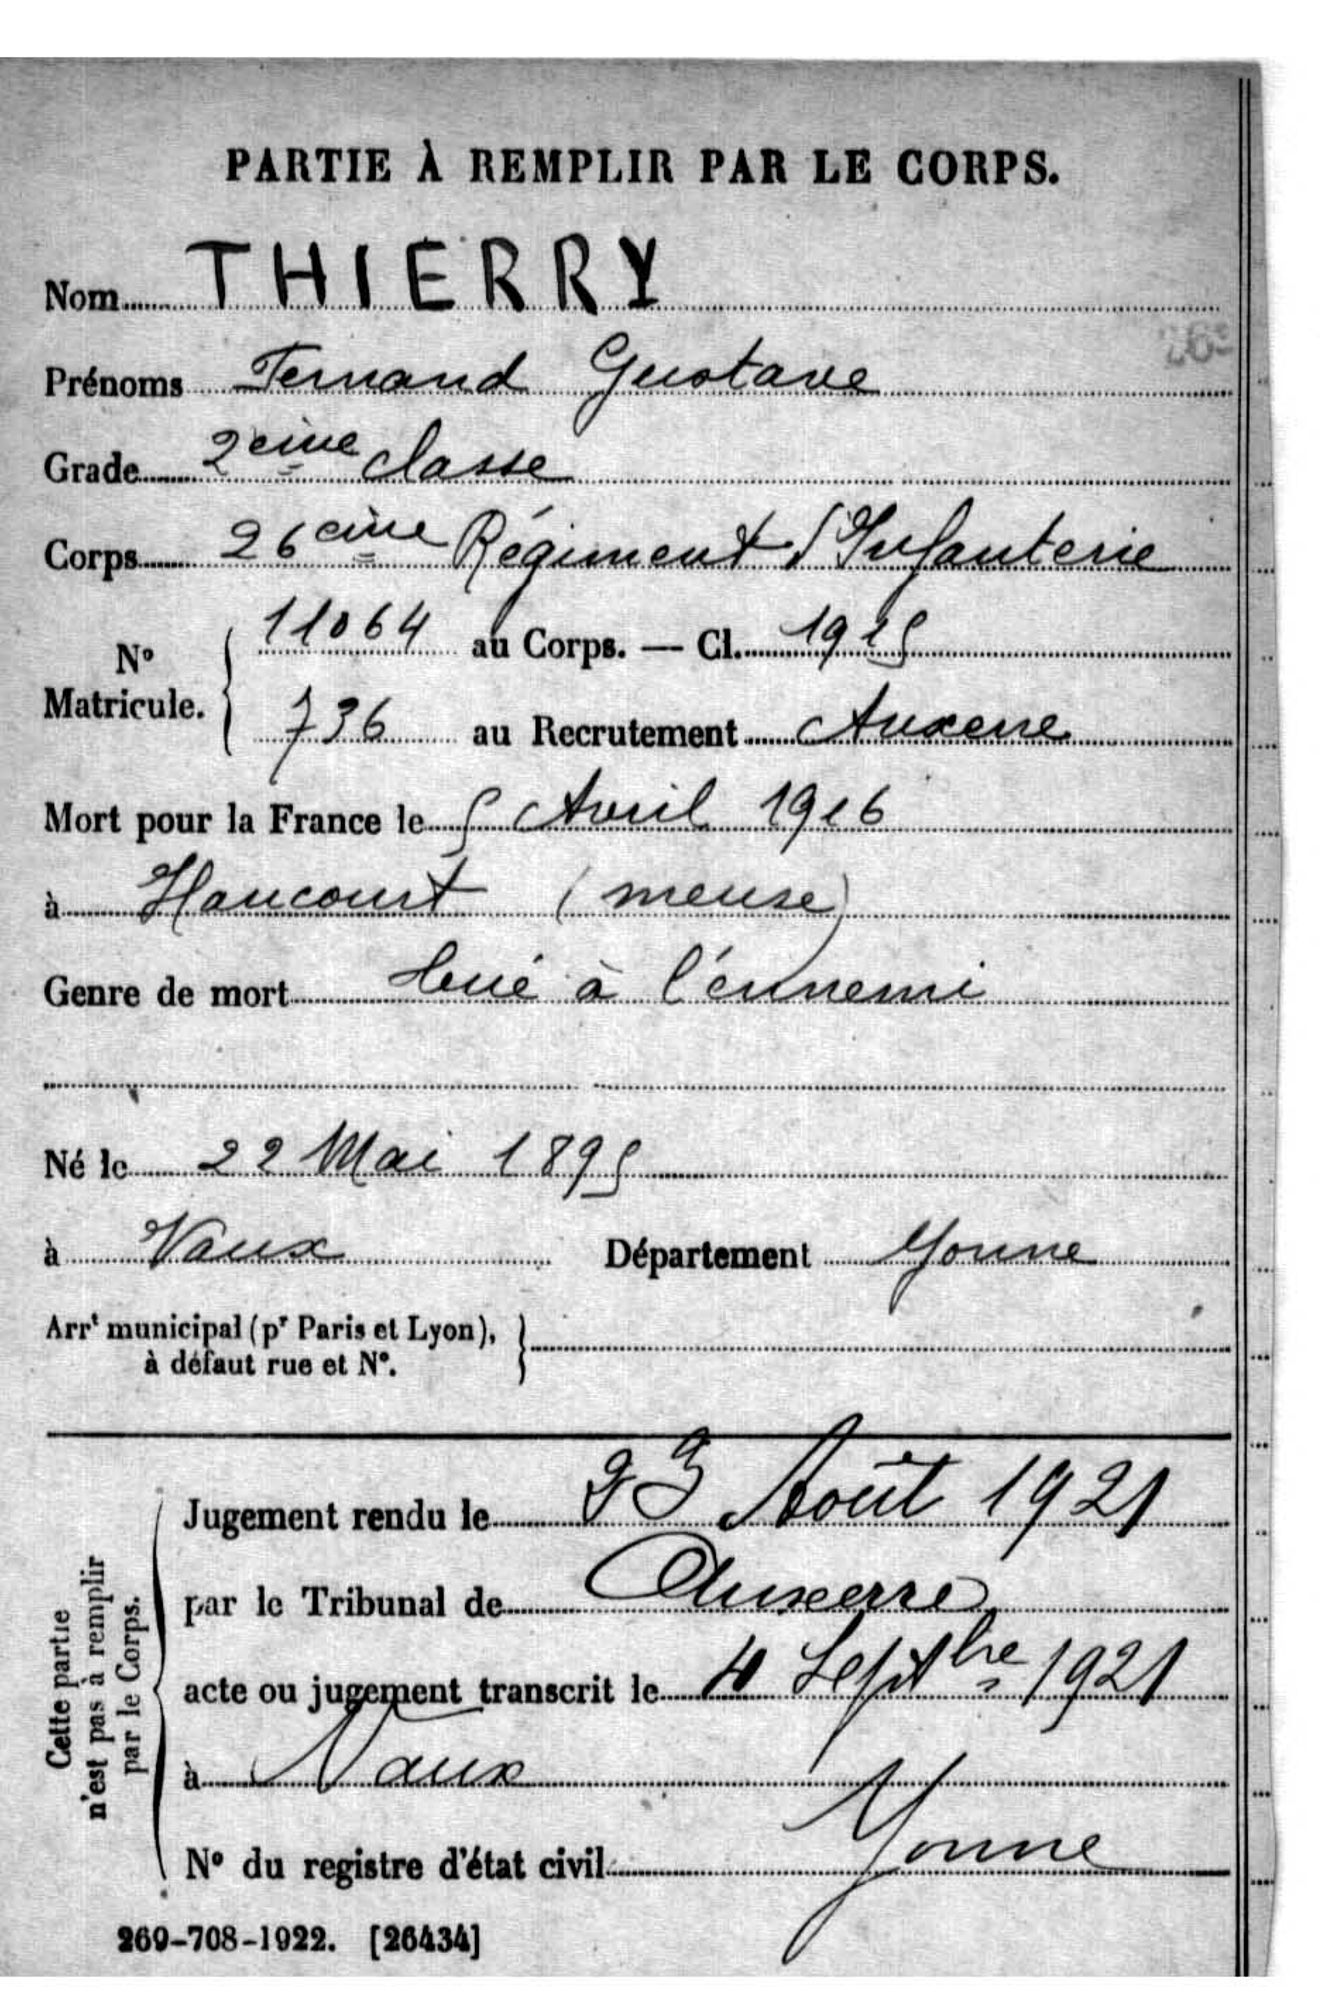 PARTIE À REMPLIR PAR LE CORPS.
Nom THIERRY
Prénoms Fernand Gustave
Grade 2eme classe
Corps 26eme Régiment d'Infanterie
N° Matricule. { 11064 au Corps. — Cl. 1915
736 au Recrutement Auxerre
Mort pour la France le 5 Avril 1916
à Haucourt (meuse)
Genre de mort tué à l'ennemi
Né le 22 Mai 1895
à Vaux Département Yonne
Arrt municipal (pr Paris et Lyon), }
à défaut rue et N°.
Cette partie
n'est pas à remplir
par le Corps.
Jugement rendu le 23 Août 1921
par le Tribunal de Auxerre
acte ou jugement transcrit le 4 Septbre 1921
à Vaux
N° du registre d'état civil Yonne
269-708-1922. [26434]